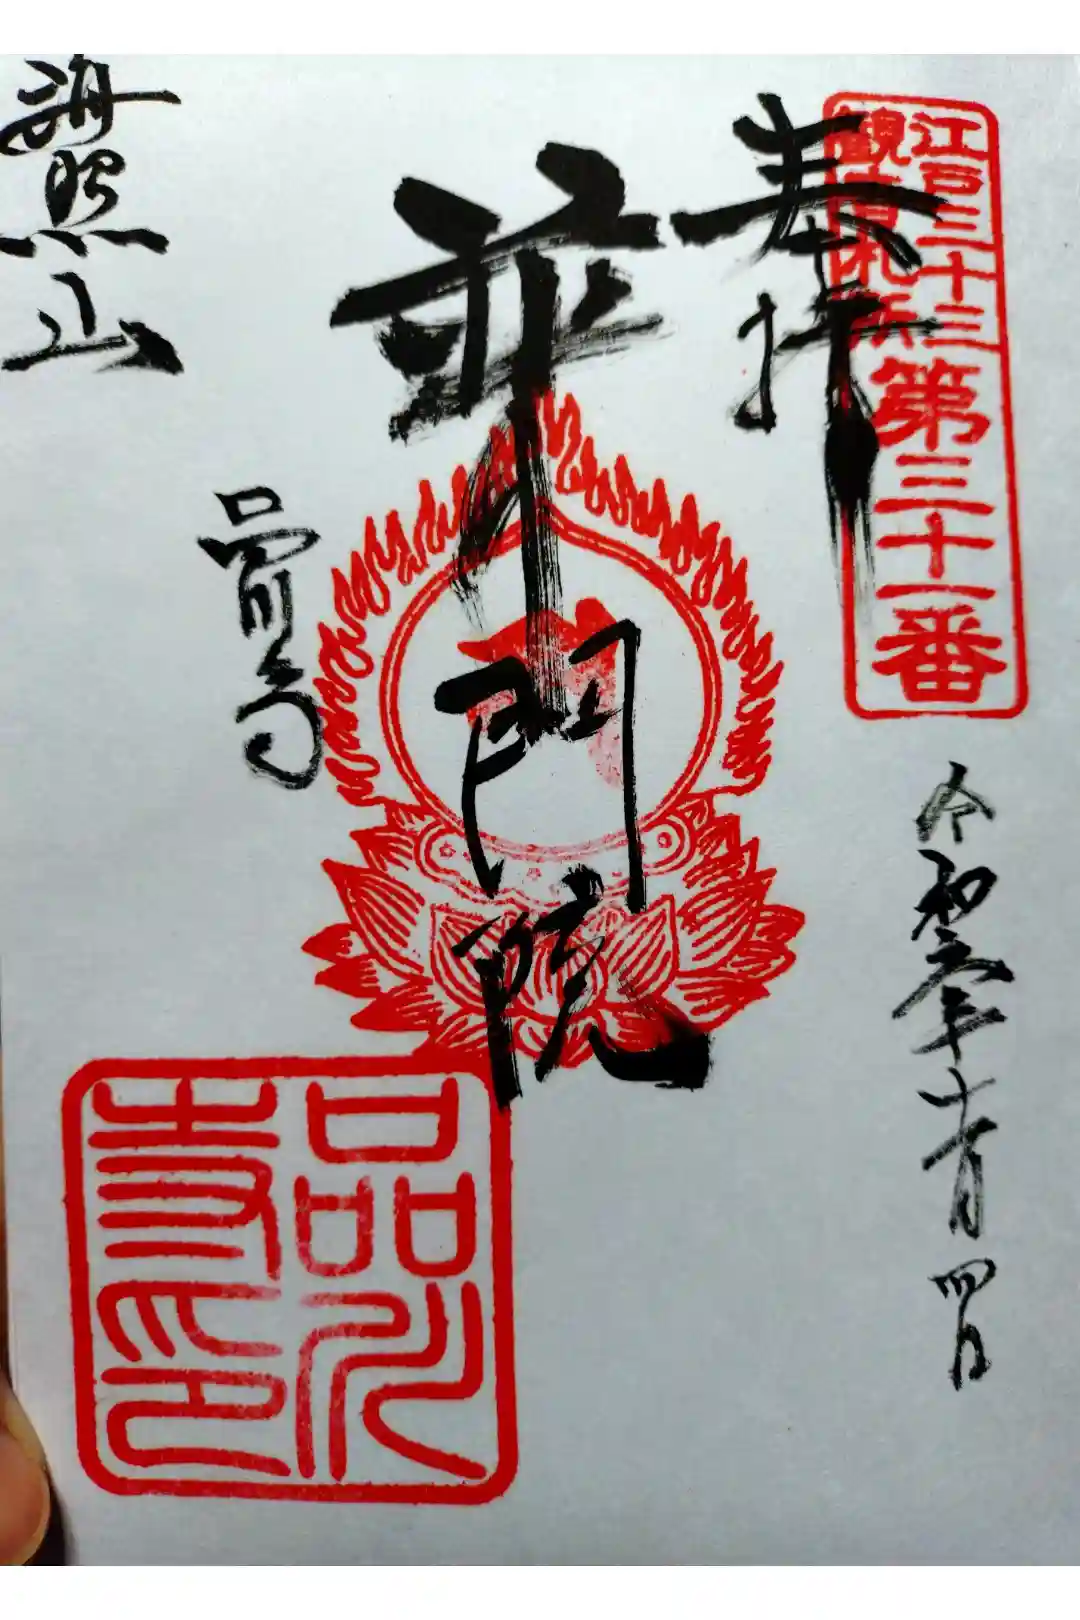 江戸三十三
観音札所
第三十一番
奉拝
令和年十月四日
普門院
海照山
品川寺
品川
寺印